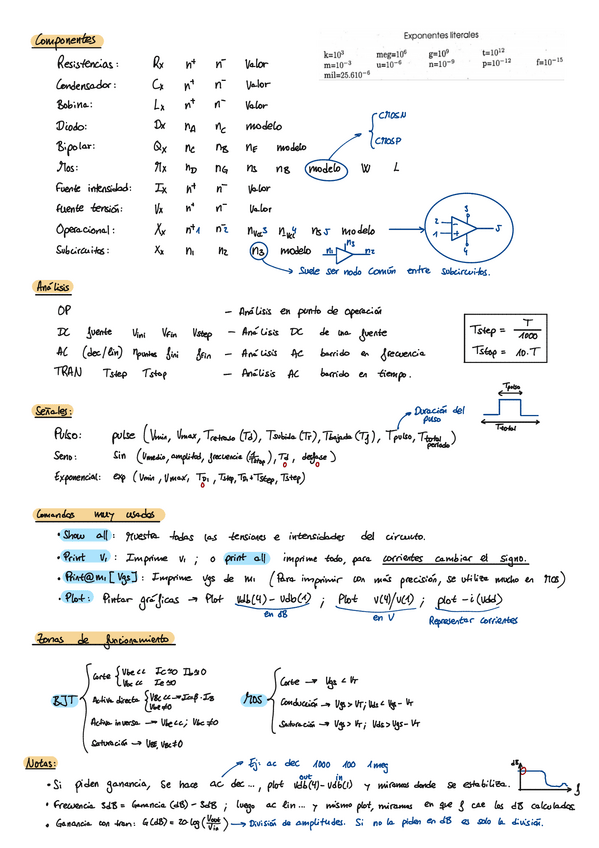 Componentes
Exponentes literales
k=10³ meg=10⁶ g=10⁹ t=10¹²
m=10⁻³ u=10⁻⁶ n=10⁻⁹ p=10⁻¹² f=10⁻¹⁵
mil=25.610⁻⁶
Resistencias: Rx n⁺ n⁻ Valor
Condensador: Cx n⁺ n⁻ Valor
Bobina: Lx n⁺ n⁻ Valor
Diodo: Dx nA nC modelo
CMOSN
CMOSP
Bipolar: Qx nC nB nE modelo
Mos: Mx nD nG nS nB modelo W L
Fuente intensidad: Ix n⁺ n⁻ Valor
Fuente tensión: Vx n⁺ n⁻ Valor
Operacional: Xx n⁺1 n⁻2 nVcc3 n-Vcc4 ns5 modelo
2 1 3 4 5
Subcircuitos: Xx n1 n2 n3 modelo n1 n3 n2
Suele ser nodo común entre subcircuitos.
Análisis
OP – Análisis en punto de operación
DC fuente Vini Vfin Vstep – Análisis DC de una fuente
AC (dec/lin) npuntos fini ffin – Análisis AC barrido en frecuencia
TRAN Tstep Tstop – Análisis AC barrido en tiempo.
Tstep = T/1000
Tstop = 10·T
Señales:
Duración del pulso
Tpulso
Ttotal
Pulso: pulse (Vmin, Vmax, Tretraso (Td), Tsubida (Tr), Tbajada (Tf), Tpulso, Ttotal periodo)
Seno: sin (Vmedio, amplitud, frecuencia, Td, desfase)
0 0
Exponencial: exp (Vmin, Vmax, TD1, Tstep, TD1+Tstep, Tstep)
0
Comandos muy usados
• Show all: muestra todas las tensiones e intensidades del circuito.
• Print V1: Imprime V1; o print all imprime todo, para corrientes cambiar el signo.
• Print@m1[Vgs]: Imprime Vgs de m1 (Para imprimir con más precisión, se utiliza mucho en MOS)
• Plot: Pintar gráficas → Plot Vdb(4) – Vdb(1); Plot V(4)/V(1); plot –i(Vdd)
en dB en V Representar corrientes
Zonas de funcionamiento
BJT
Corte { Vbe<< Ic≈0 Ib≈0
Vbc<< Ie≈0
Activa directa { Vbc<< → Ic=β·IB
Vbe≠0
Activa inversa → Vbe<<; Vbc≠0
Saturación → VBE, VBC≠0
MOS
Corte → Vgs < VT
Conducción → Vgs > VT; Vds < Vgs – VT
Saturación → Vgs > VT; Vds > Vgs – VT
Notas:
Ej: ac dec 1000 100 1meg
out in
• Si piden ganancia, se hace ac dec..., plot Vdb(4) – Vdb(1) y miramos donde se estabiliza.
dB f
• Frecuencia 3dB = Ganancia (dB) – 3dB; luego ac lin... y mismo plot, miramos en que f cae los dB calculados
• Ganancia con tran: G(dB) = 20·log(Vout/Vin) → División de amplitudes. Si no la piden en dB es solo la división.